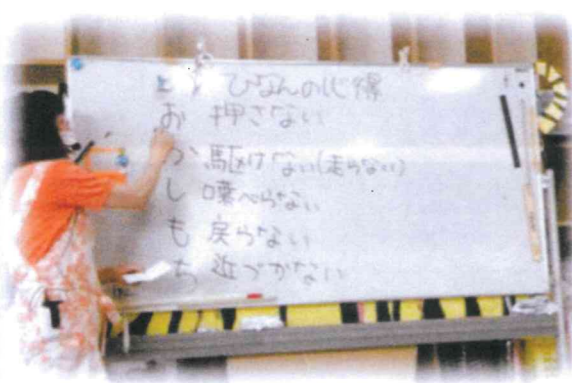 ひなんの心得
お 押さない
か 駆けない(走らない)
し 喋べらない
も 戻らない
ち 近づかない